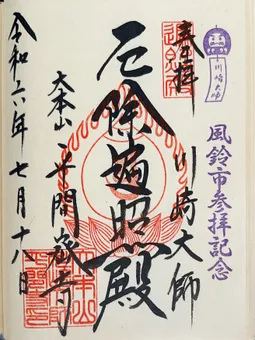 川崎大師
風鈴市参拝記念
奉拝
川崎大師
厄除遍照殿
大本山
平間寺
令和六年七月十八日